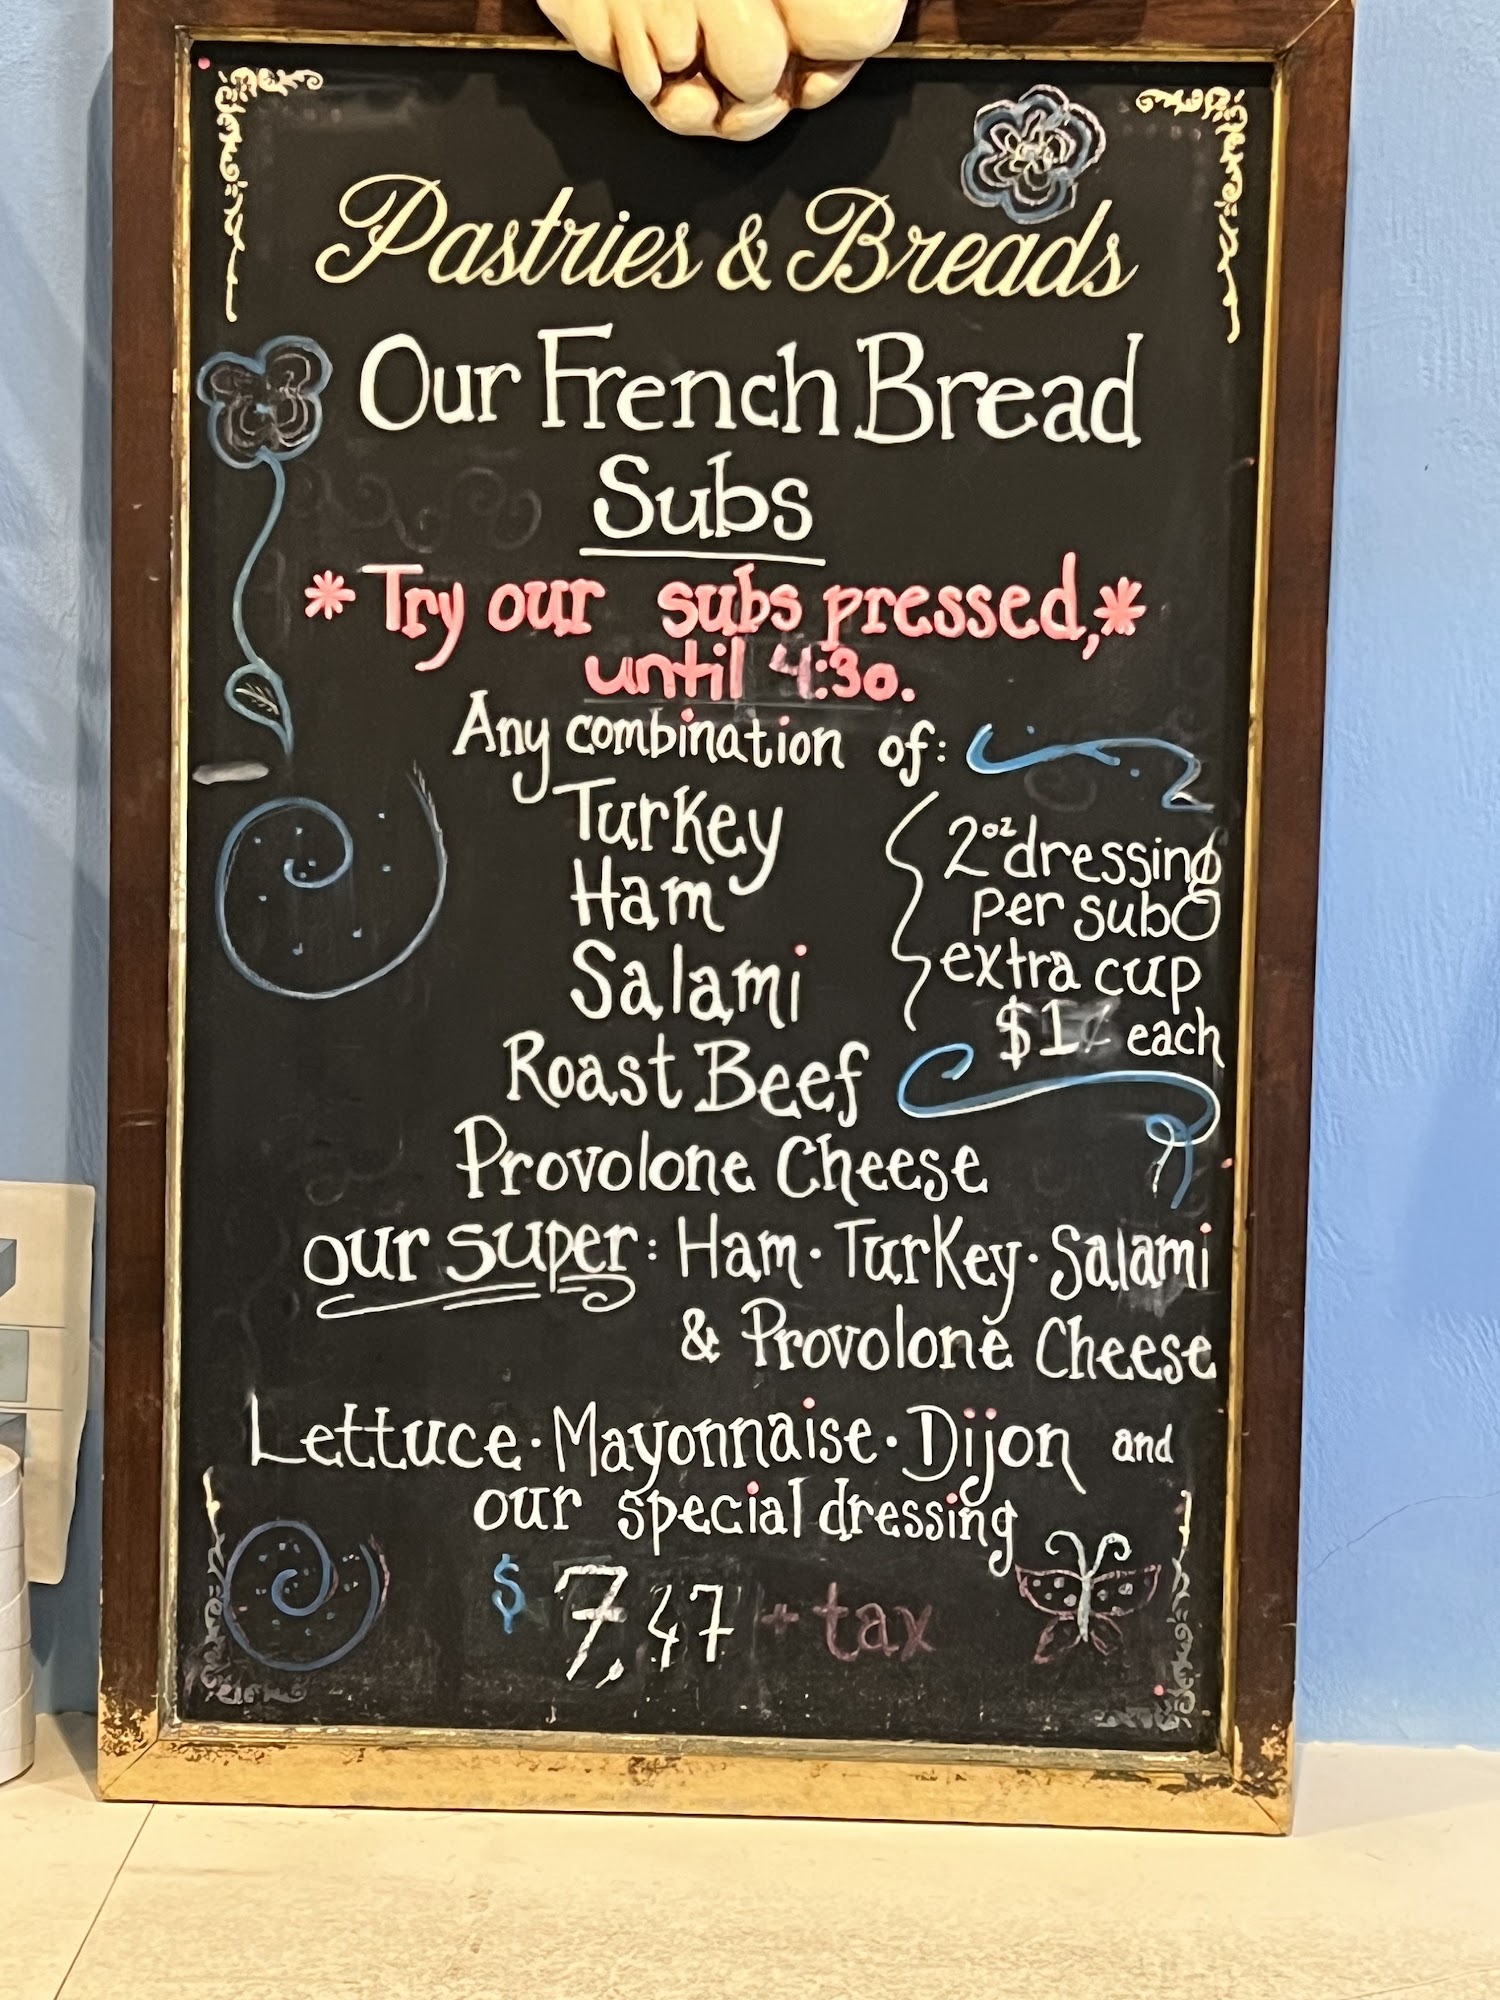 Pastries & Breads
Our French Bread
Subs
* Try our subs pressed, *
until 4:30.
Any combination of:
Turkey
Ham
Salami
Roast Beef
Provolone Cheese
2oz dressing
per sub
extra cup
$1 each
our super: Ham · Turkey · Salami
& Provolone Cheese
Lettuce · Mayonnaise · Dijon and
our special dressing
$ 7.47 + tax